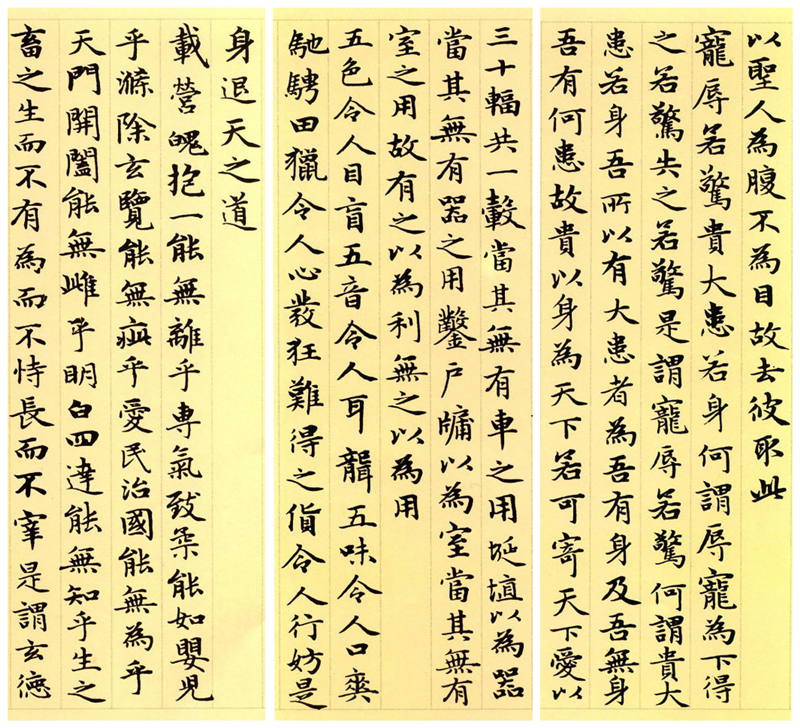 身退天之道
載營魄抱一能無離乎專氣致柔能如嬰兒
乎滌除玄覽能無疵乎愛民治國能無為乎
天門開闔能無雌乎明白四達能無知乎生之
畜之生而不有為而不恃長而不宰是謂玄德
三十輻共一轂當其無有車之用埏埴以為器
當其無有器之用鑿戶牖以為室當其無有
室之用故有之以為利無之以為用
五色令人目盲五音令人耳聾五味令人口爽
馳騁田獵令人心發狂難得之貨令人行妨是
以聖人為腹不為目故去彼取此
寵辱若驚貴大患若身何謂辱寵為下得
之若驚失之若驚是謂寵辱若驚何謂貴大
患若身吾所以有大患者為吾有身及吾無身
吾有何患故貴以身為天下若可寄天下愛以